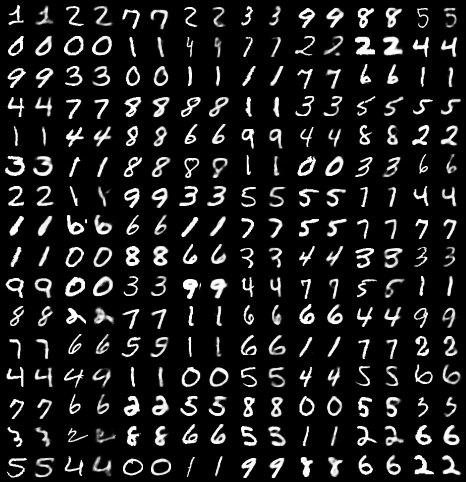 1 1 2 2 7 7 2 2 3 3 9 9 8 8 5 5
0 0 0 0 1 1 9 9 7 7 2 2 2 2 4 4
9 9 3 3 0 0 1 1 1 1 7 7 6 6 1 1
4 4 7 7 8 8 8 8 1 1 3 3 5 5 5 5
1 1 4 4 8 8 6 6 9 9 4 4 8 8 2 2
3 3 1 1 8 8 8 8 1 1 0 0 3 3 6 6
2 2 1 1 9 9 3 3 5 5 5 5 7 7 4 4
1 1 6 6 6 6 1 1 7 7 5 5 7 7 7 7
1 1 0 0 8 8 6 6 3 3 4 4 3 3 3 3
9 9 0 0 3 3 9 9 4 4 7 7 5 5 1 1
8 8 2 2 7 7 1 1 6 6 6 6 4 4 9 9
7 7 6 6 5 5 1 1 6 6 1 1 7 7 2 2
4 4 4 9 1 1 0 0 5 5 4 4 5 5 6 6
7 7 6 6 2 2 5 5 8 8 0 0 5 5 3 3
3 3 2 2 8 8 6 6 5 5 1 1 2 2 6 6
5 5 4 4 0 0 1 1 9 9 8 8 6 6 2 2